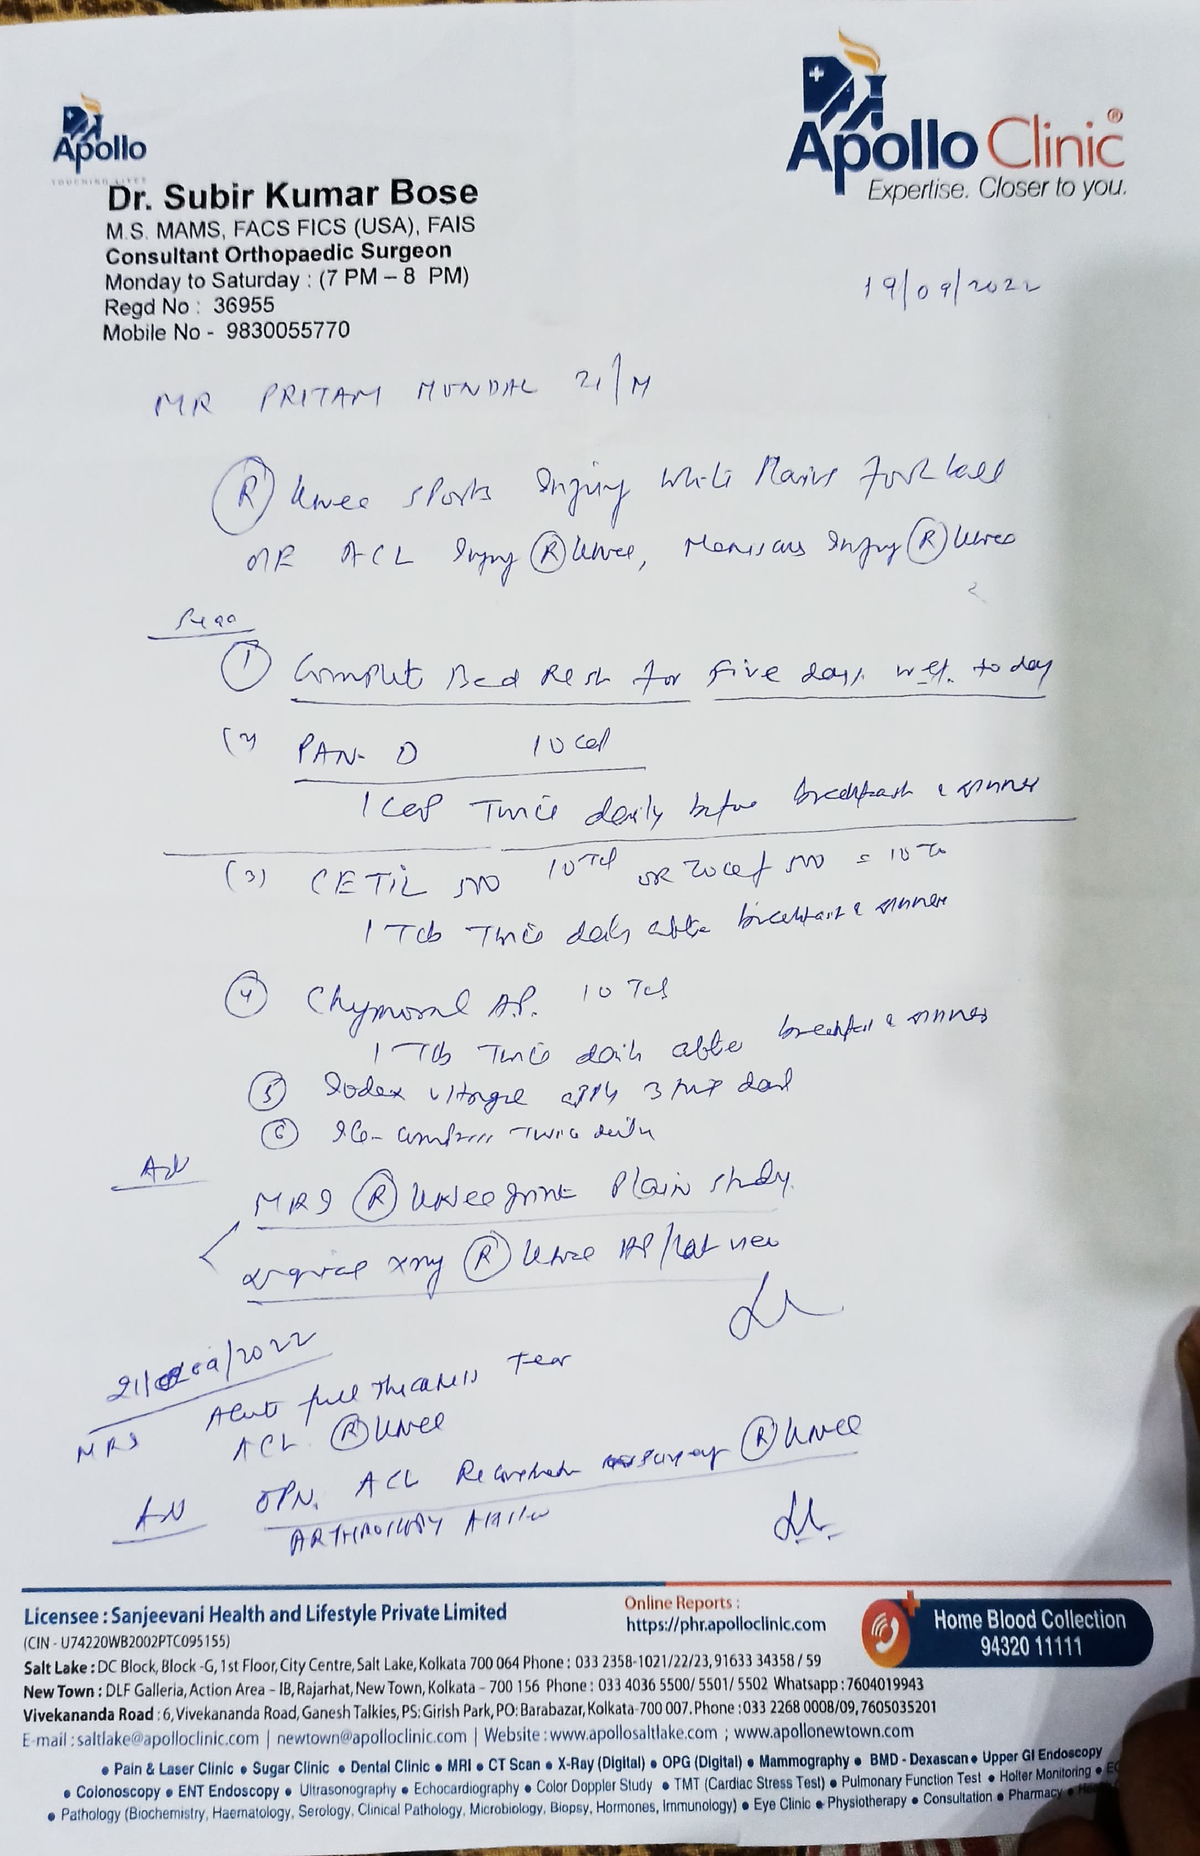 Apollo
TOUCHING LIVES
Apollo Clinic®
Expertise. Closer to you.
Dr. Subir Kumar Bose
M.S. MAMS, FACS FICS (USA), FAIS
Consultant Orthopaedic Surgeon
Monday to Saturday : (7 PM – 8 PM)
Regd No : 36955
Mobile No - 9830055770
19/09/2022
MR PRITAM MUNDAL 21/M
(R) Knee sports Injury While Playing football
ACL Injury (R) Knee, Meniscus Injury (R) Knee
(1) Complet Bed Rest for five days w.e.f. today
(2) PAN-D 10 cap
1 cap Twice daily before breakfast & dinner
(3) CETIL 500 10 Tab OR 500 = 10 Tab
1 Tab Twice daily after breakfast & dinner
(4) Chymoral A.P. 10 Tab
1 Tab Twice daily after breakfast & dinner
(5) Iodex apply 3 time daily
(6) Ice- compress Twice daily
Adv
MRI (R) Knee Joint Plain study.
Digital Xray (R) Knee AP/Lat view
21/09/2022
MRI Acute full Thickness Tear
ACL (R) Knee
Adv OPN. ACL Reconstruction surgery (R) Knee
ARTHROSCOPY
Licensee : Sanjeevani Health and Lifestyle Private Limited
(CIN - U74220WB2002PTC095155)
Online Reports :
https://phr.apolloclinic.com
Home Blood Collection
94320 11111
Salt Lake : DC Block, Block -G, 1st Floor, City Centre, Salt Lake, Kolkata 700 064 Phone : 033 2358-1021/22/23, 91633 34358 / 59
New Town : DLF Galleria, Action Area – IB, Rajarhat, New Town, Kolkata – 700 156 Phone : 033 4036 5500/ 5501/ 5502 Whatsapp : 7604019943
Vivekananda Road : 6, Vivekananda Road, Ganesh Talkies, PS: Girish Park, PO: Barabazar, Kolkata-700 007. Phone : 033 2268 0008/09, 7605035201
E-mail : saltlake@apolloclinic.com | newtown@apolloclinic.com | Website : www.apollosaltlake.com ; www.apollonewtown.com
• Pain & Laser Clinic • Sugar Clinic • Dental Clinic • MRI • CT Scan • X-Ray (Digital) • OPG (Digital) • Mammography • BMD - Dexascan • Upper GI Endoscopy
• Colonoscopy • ENT Endoscopy • Ultrasonography • Echocardiography • Color Doppler Study • TMT (Cardiac Stress Test) • Pulmonary Function Test • Holter Monitoring •
• Pathology (Biochemistry, Haematology, Serology, Clinical Pathology, Microbiology, Biopsy, Hormones, Immunology) • Eye Clinic • Physiotherapy • Consultation • Pharmacy •